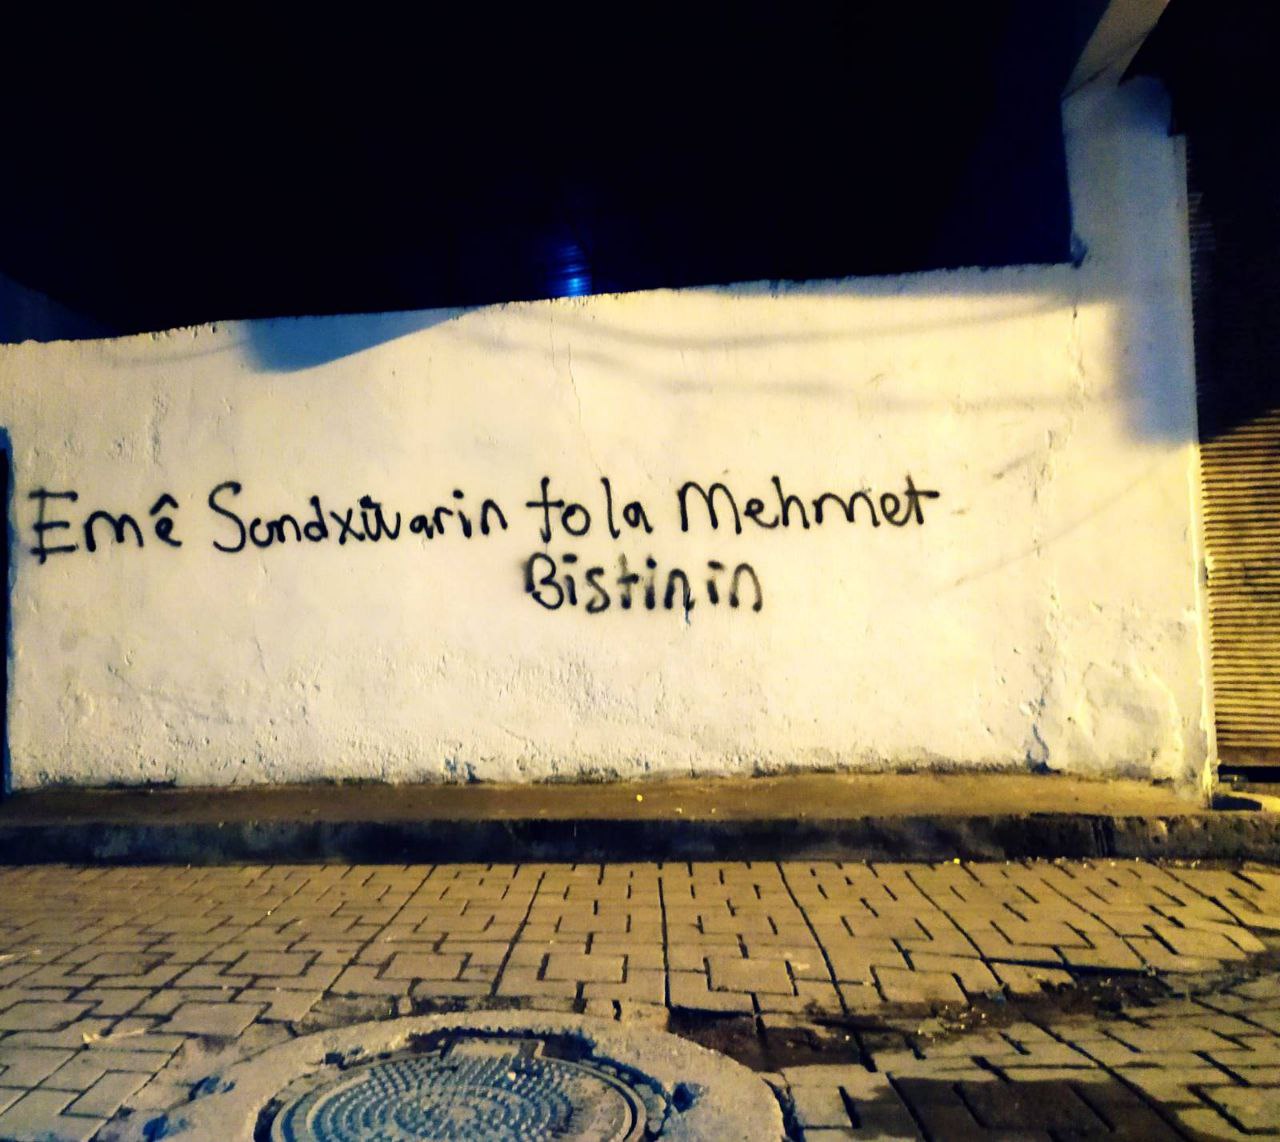 Emê Sondxwarin tola Mehmet
Bistinin